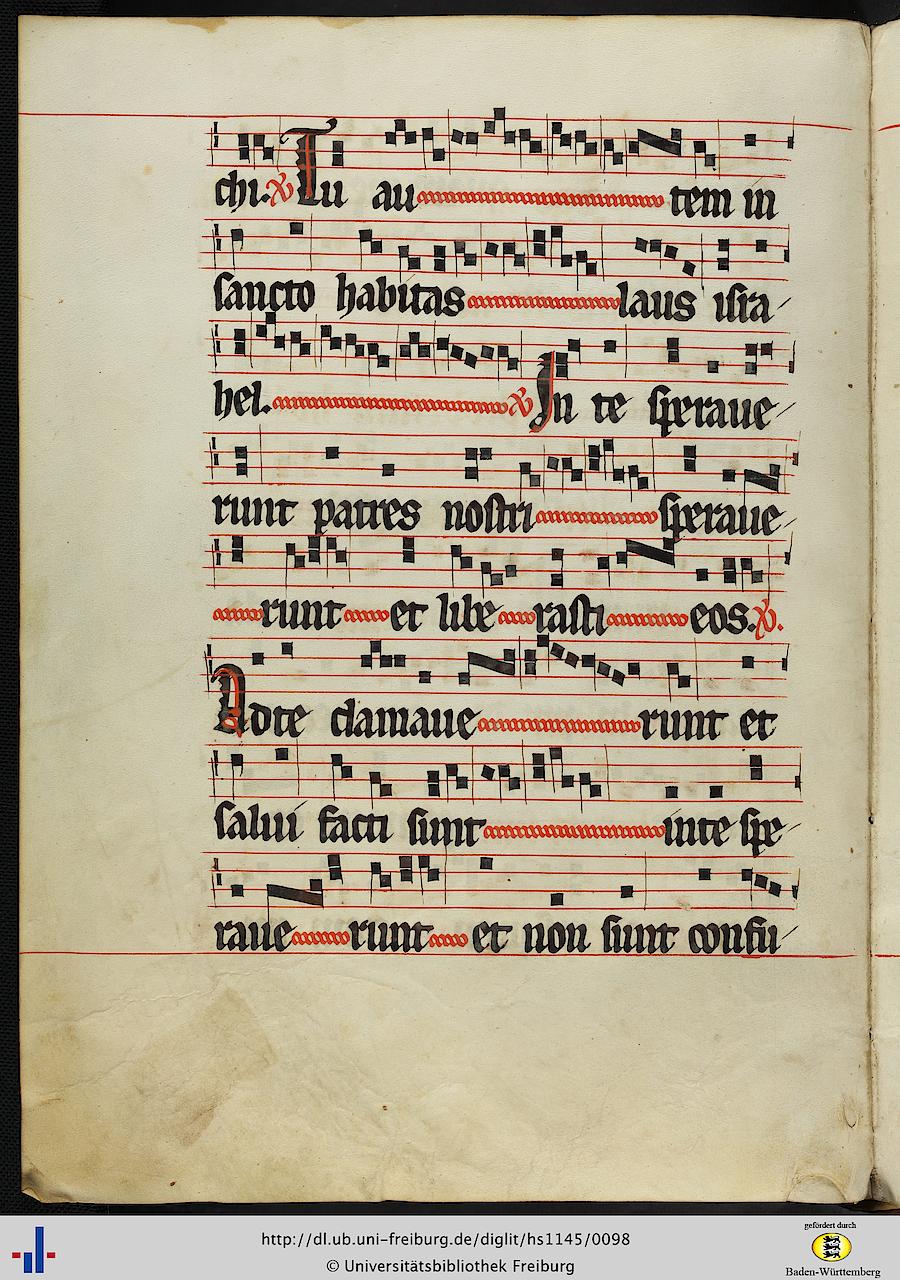 chi. ℣ Tu au tem in
sancto habitas laus isra
hel. ℣ In te speraue
runt patres nostri speraue
runt et libe rasti eos. ℣.
Adte clamaue runt et
salui facti sunt inte spe
raue runt et non sunt confu
http://dl.ub.uni-freiburg.de/diglit/hs1145/0098
© Universitätsbibliothek Freiburg
gefördert durch
Baden-Württemberg